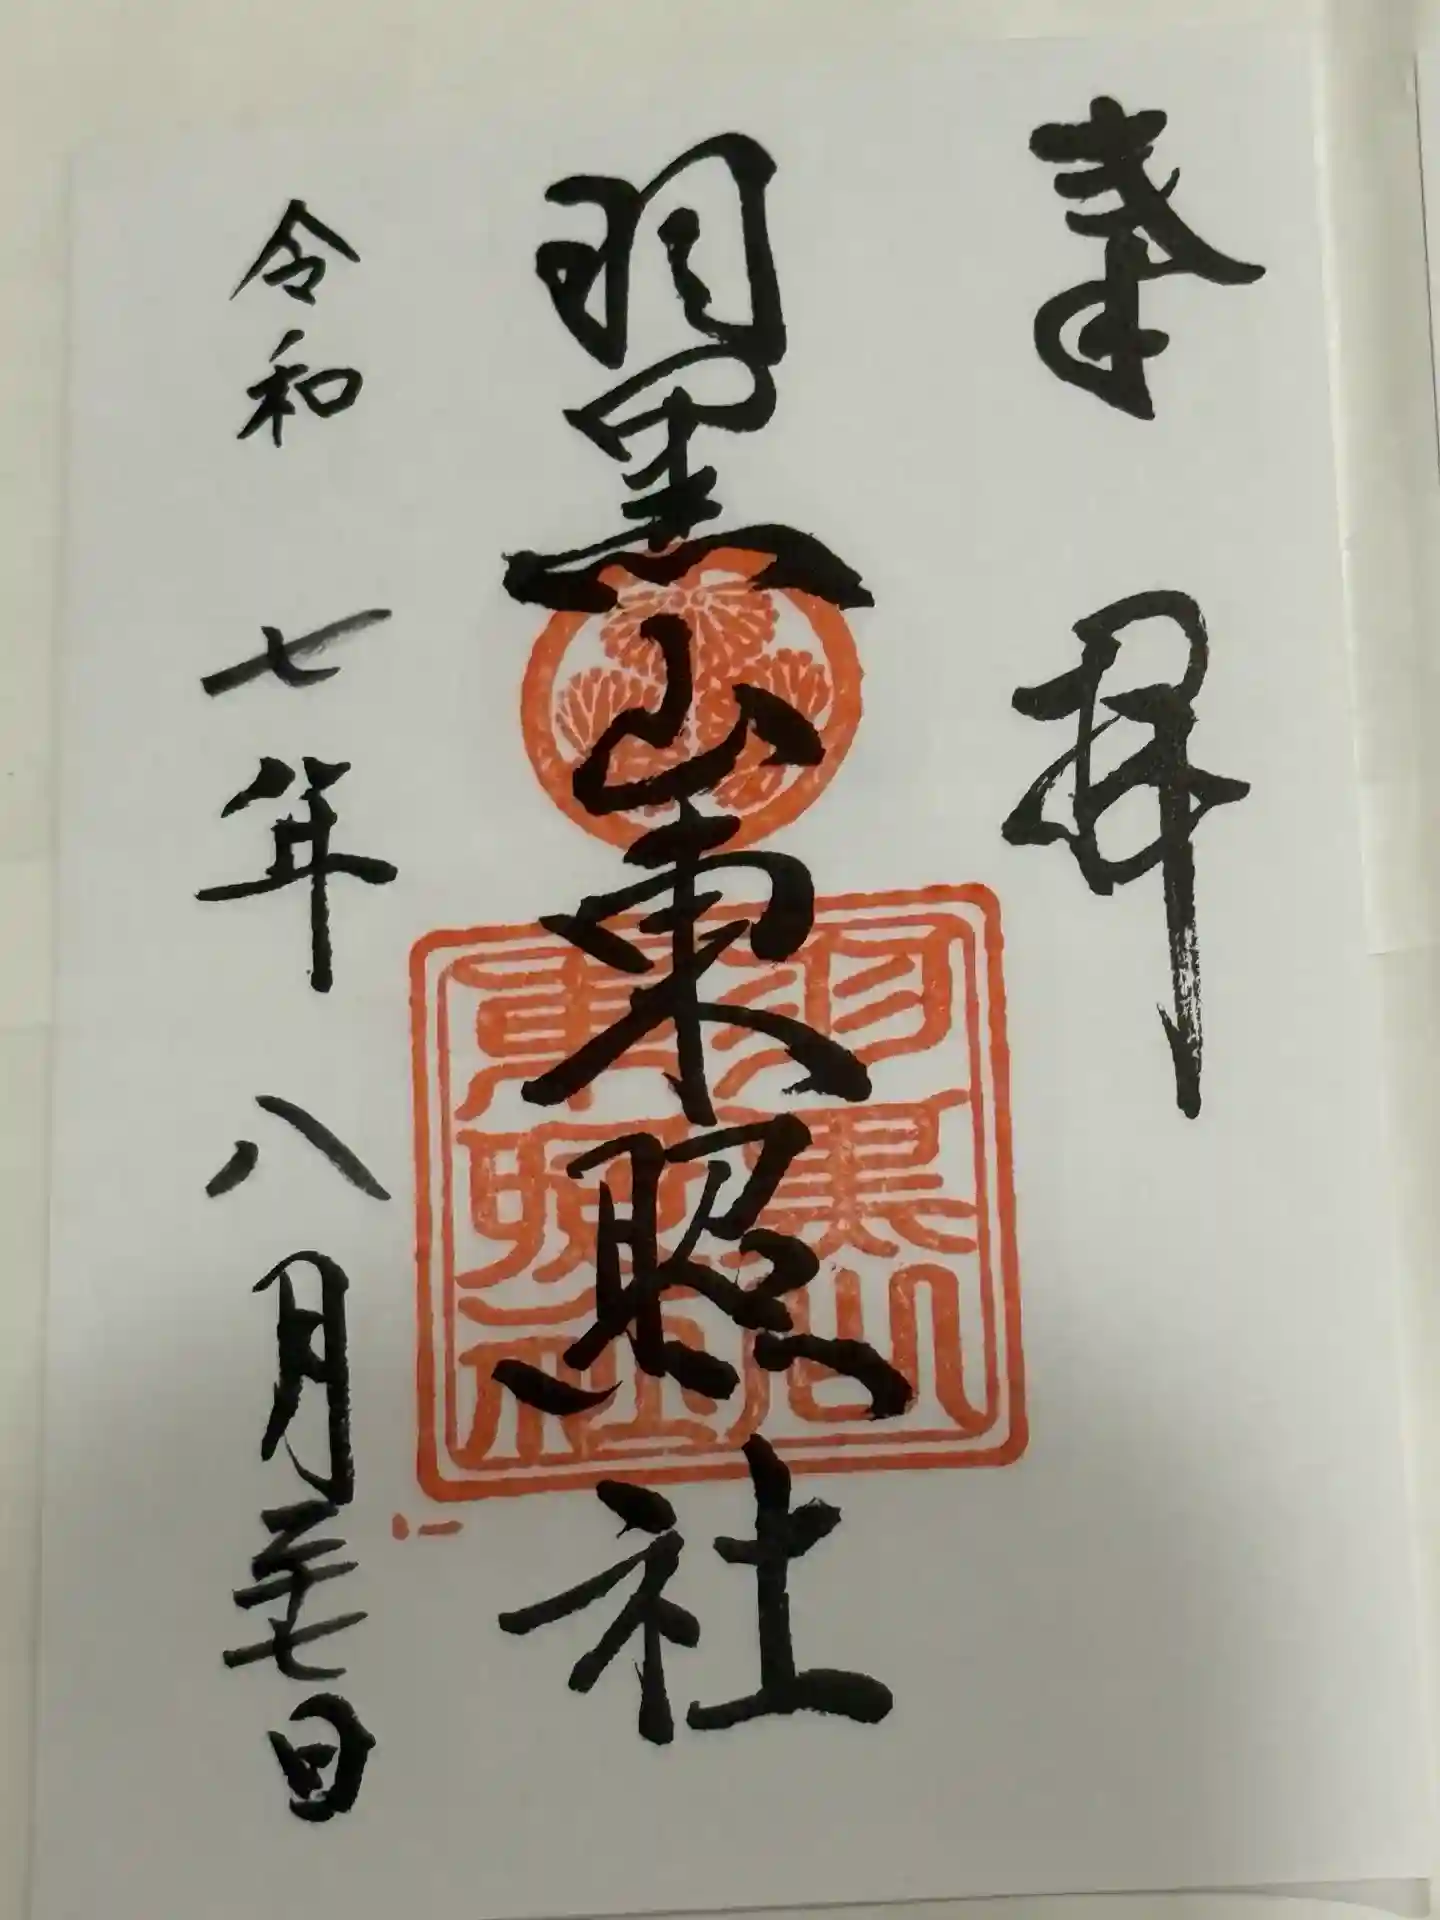 奉拝
羽黒山東照社
羽黒山
東照社
令和七年八月二十七日